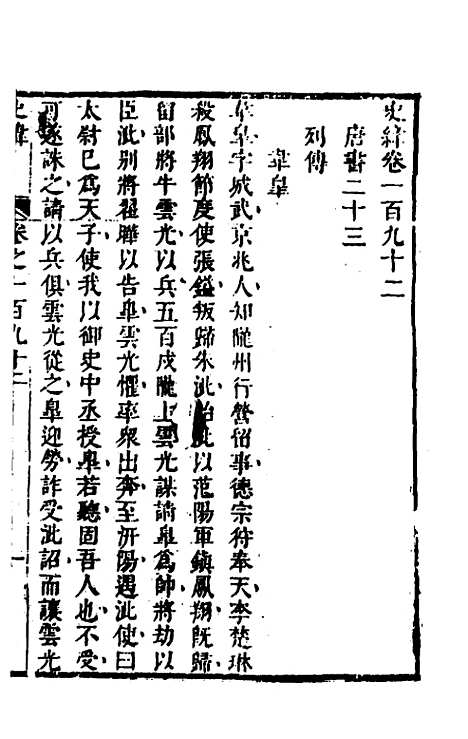 史緯卷一百九十二
唐書二十三
列傳
韋皋
韋皋字城武京兆人知隴州行營留事德宗狩奉天李楚琳
殺鳳翔節度使張鎰叛歸朱泚始泚以范陽軍鎮鳳翔既歸
留部將牛雲光以兵五百戍隴上雲光謀請皋爲帥將劫以
臣泚別將翟曄以告皋雲光懼率衆出奔至汧陽遇泚使曰
太尉已爲天子使我以御史中丞授皋若聽固吾人也不受
可遂誅之請以兵俱雲光從之皋迎勞詐受泚詔而讓雲光
史緯
卷之一百九十二
一